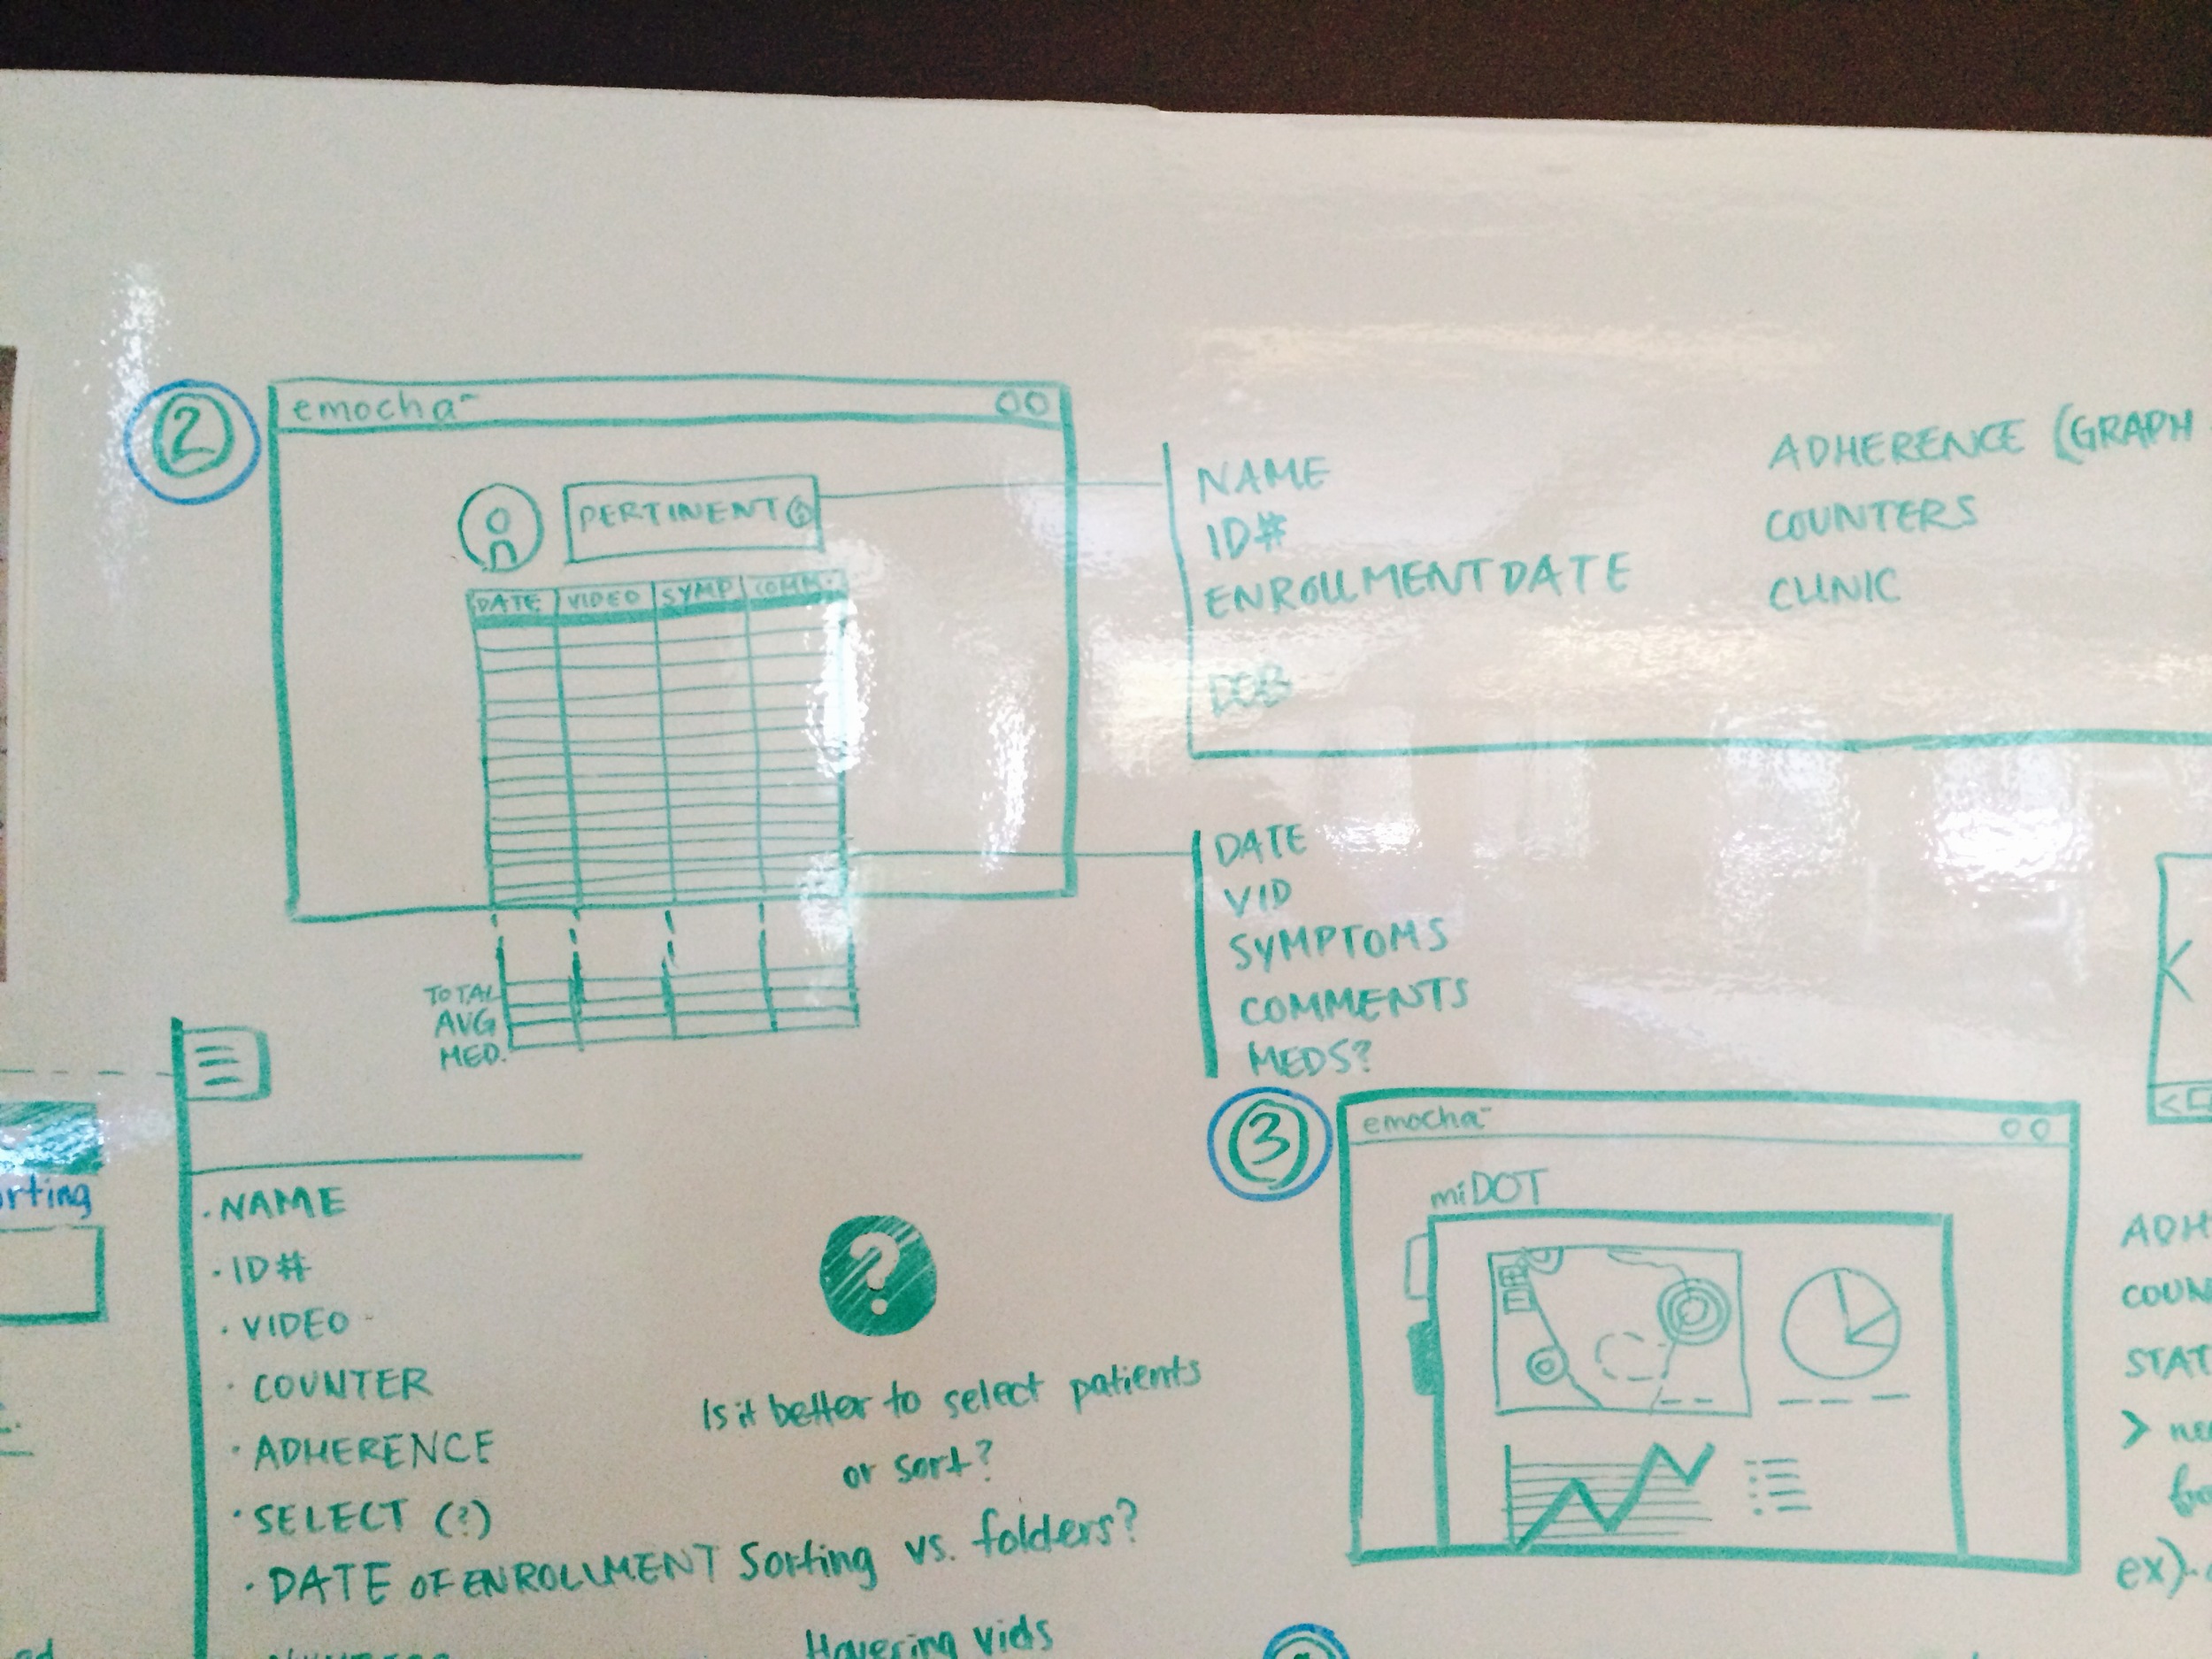 2
emocha
PERTINENT
DATE VIDEO SYMP. COMM.
TOTAL
AVG
MED.
NAME
ID#
ENROLLMENT DATE
DOB
ADHERENCE (GRAPH
COUNTERS
CLINIC
DATE
VID
SYMPTOMS
COMMENTS
MEDS?
· NAME
· ID#
· VIDEO
· COUNTER
· ADHERENCE
· SELECT (?)
· DATE OF ENROLLMENT
?
Is it better to select patients
or sort?
Sorting vs. folders?
Hovering vids
3
emocha
miDOT
ADH
COUN
STAT
ex)
orting